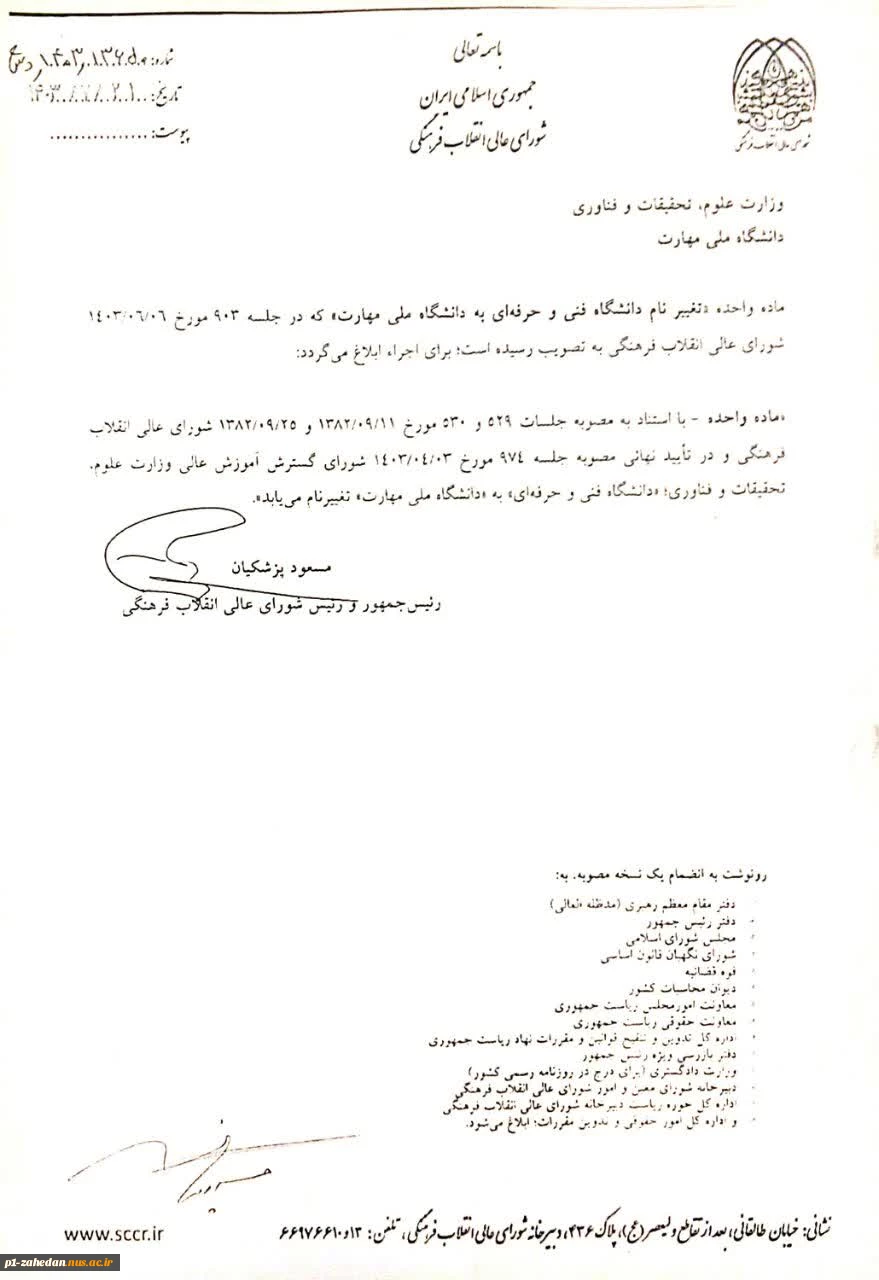 باسمه تعالی
جمهوری اسلامی ایران
شورای عالی انقلاب فرهنگی
شماره:
تاریخ:
پیوست: ................
شورای عالی انقلاب فرهنگی
وزارت علوم، تحقیقات و فناوری
دانشگاه ملی مهارت
ماده واحده «تغییر نام دانشگاه فنی و حرفه‌ای به دانشگاه ملی مهارت» که در جلسه ۹۰۳ مورخ ۱٤۰۳/۰٦/۰٦
شورای عالی انقلاب فرهنگی به تصویب رسیده است؛ برای اجراء ابلاغ می‌گردد:
«ماده واحده - با استناد به مصوبه جلسات ٥۲۹ و ٥۳۰ مورخ ۱۳۸۲/۰۹/۱۱ و ۱۳۸۲/۰۹/۲٥ شورای عالی انقلاب
فرهنگی و در تأیید نهائی مصوبه جلسه ۹۷٤ مورخ ۱٤۰۳/۰٤/۰۳ شورای گسترش آموزش عالی وزارت علوم،
تحقیقات و فناوری؛ «دانشگاه فنی و حرفه‌ای» به «دانشگاه ملی مهارت» تغییرنام می‌یابد».
مسعود پزشکیان
رئیس‌جمهور و رئیس شورای عالی انقلاب فرهنگی
رونوشت به انضمام یک نسخه مصوبه، به:
دفتر مقام معظم رهبری (مدظله العالی)
دفتر رئیس جمهور
مجلس شورای اسلامی
شورای نگهبان قانون اساسی
قوه قضائیه
دیوان محاسبات کشور
معاونت امورمجلس ریاست جمهوری
معاونت حقوقی ریاست جمهوری
اداره کل تدوین و تنقیح قوانین و مقررات نهاد ریاست جمهوری
دفتر بازرسی ویژه رئیس جمهور
وزارت دادگستری (برای درج در روزنامه رسمی کشور)
دبیرخانه شورای معین و امور شورای عالی انقلاب فرهنگی
اداره کل حوزه ریاست دبیرخانه شورای عالی انقلاب فرهنگی
و اداره کل امور حقوقی و تدوین مقررات؛ ابلاغ می‌شود.
نشانی: خیابان طالقانی، بعد از تقاطع ولیعصر (عج)، پلاک ۴۳۶، دبیرخانه شورای عالی انقلاب فرهنگی، تلفن: ۱۳و۶۶۹۷۶۶۱۰
www.sccr.ir
p1-zahedan.nus.ac.ir